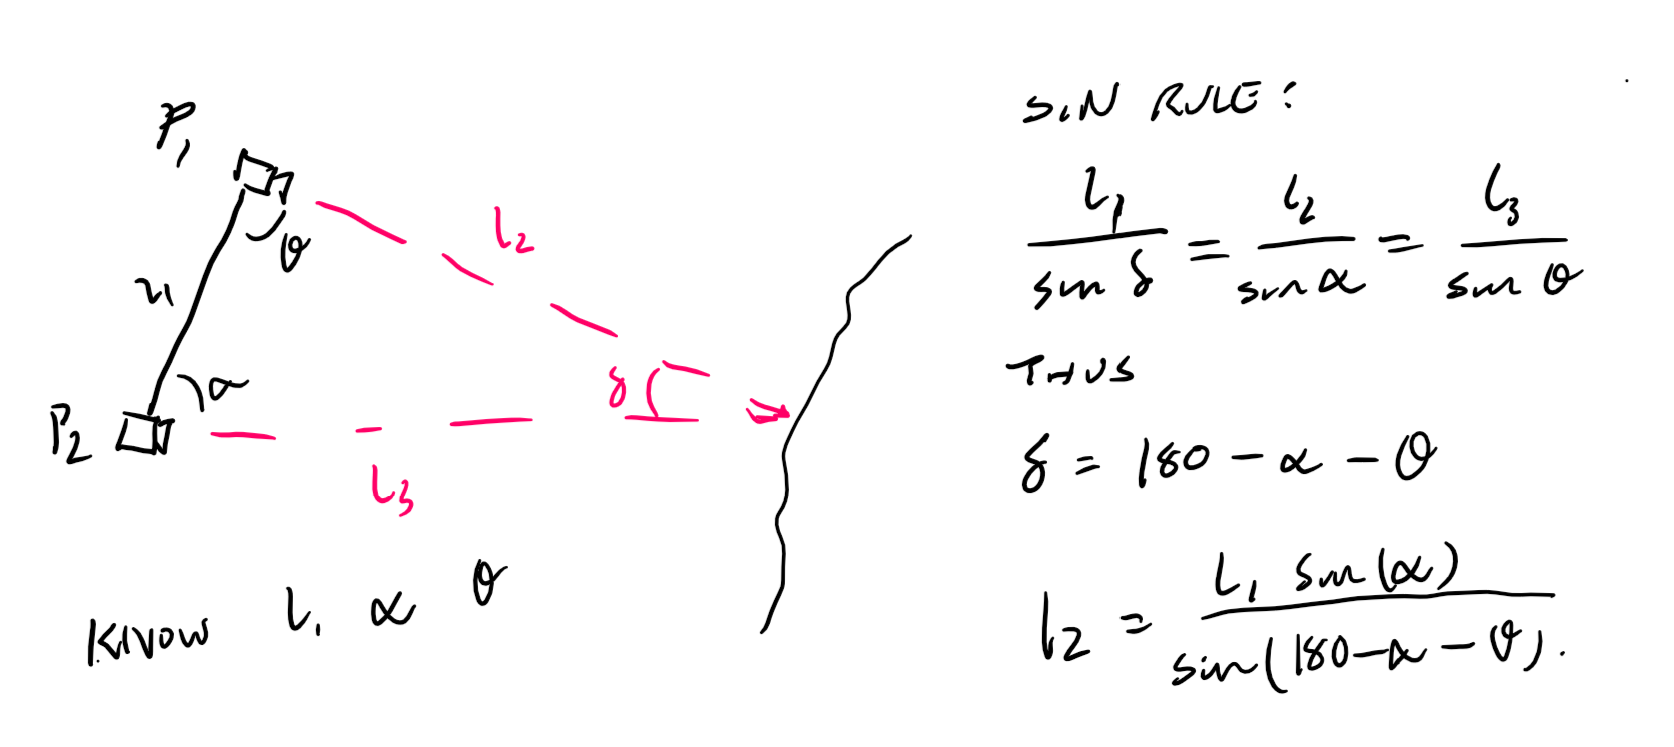 P₁
θ
L₂
L₁
α
δ
P₂
L₃
KNOW L₁ α θ
SIN RULE:
L₁/sin δ = L₂/sin α = L₃/sin θ
THUS
δ = 180 - α - θ
L₂ = L₁ sin(α)/sin(180-α-θ).